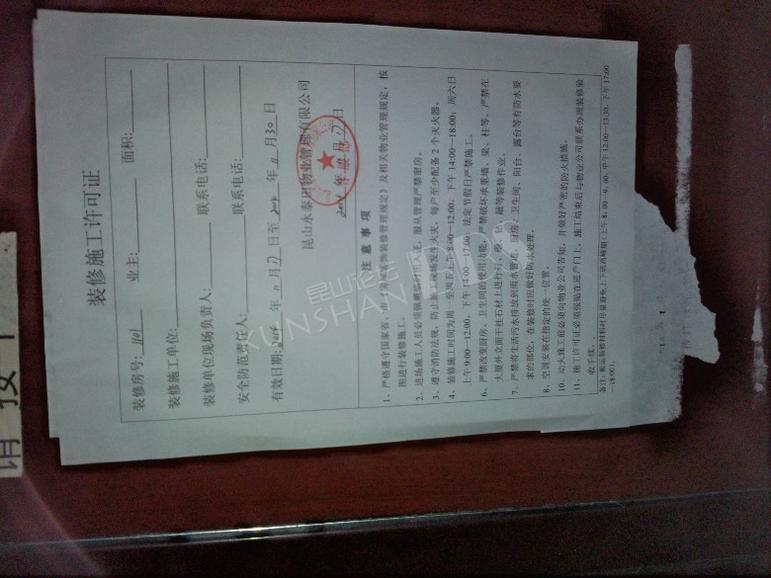 装修施工许可证
装修房号: 业主: 面积:
装修施工单位: 联系电话:
装修单位现场负责人: 联系电话:
安全防范责任人:
有效日期: 年 11 月 27 日至 年 11 月 30 日
昆山永泰 物业管理有限公司
年 月 27 日
注 意 事 项
1、严格遵守国家省、市《 装饰装修管理规定》及相关物业管理规定,按
图进行装修施工。
2、进场施工人员必须佩戴 出入证,服从管理严禁留房。
3、遵守消防法规,防止施工现场发生火灾,每户至少配备 2 个灭火器。
4、装修施工时间为周一至周五上午 8:00-12:00,下午 14:00-18:00;周六日
上午 9:00-12:00,下午 14:00-17:00,法定节假日严禁施工。
6、严禁改变厨房、卫生间的使用功能,严禁破坏承重墙、梁、柱等,严禁在
大厦外立面干挂石材上进行打、 钻、 等装修作业。
7、严禁将生活污水排放到雨水管道,厨房、卫生间、阳台、露台等有防水要
求的部位,在装修时应做好防水处理。
8、空调安装在指定的统一位置。
10、动火施工前必须向物业公司告知,并做好严密的防火措施。
11、施工许可证必须张贴在进户门上,施工结束后与物业公司联系办理装修验
收手续。
备注:搬运装修材料时尽量避免上下班高峰期(上午 8:00- :00,中午 12:00-13:30,下午 17:00
-18:00)。
请 按
昆山论坛
KUNSHAN